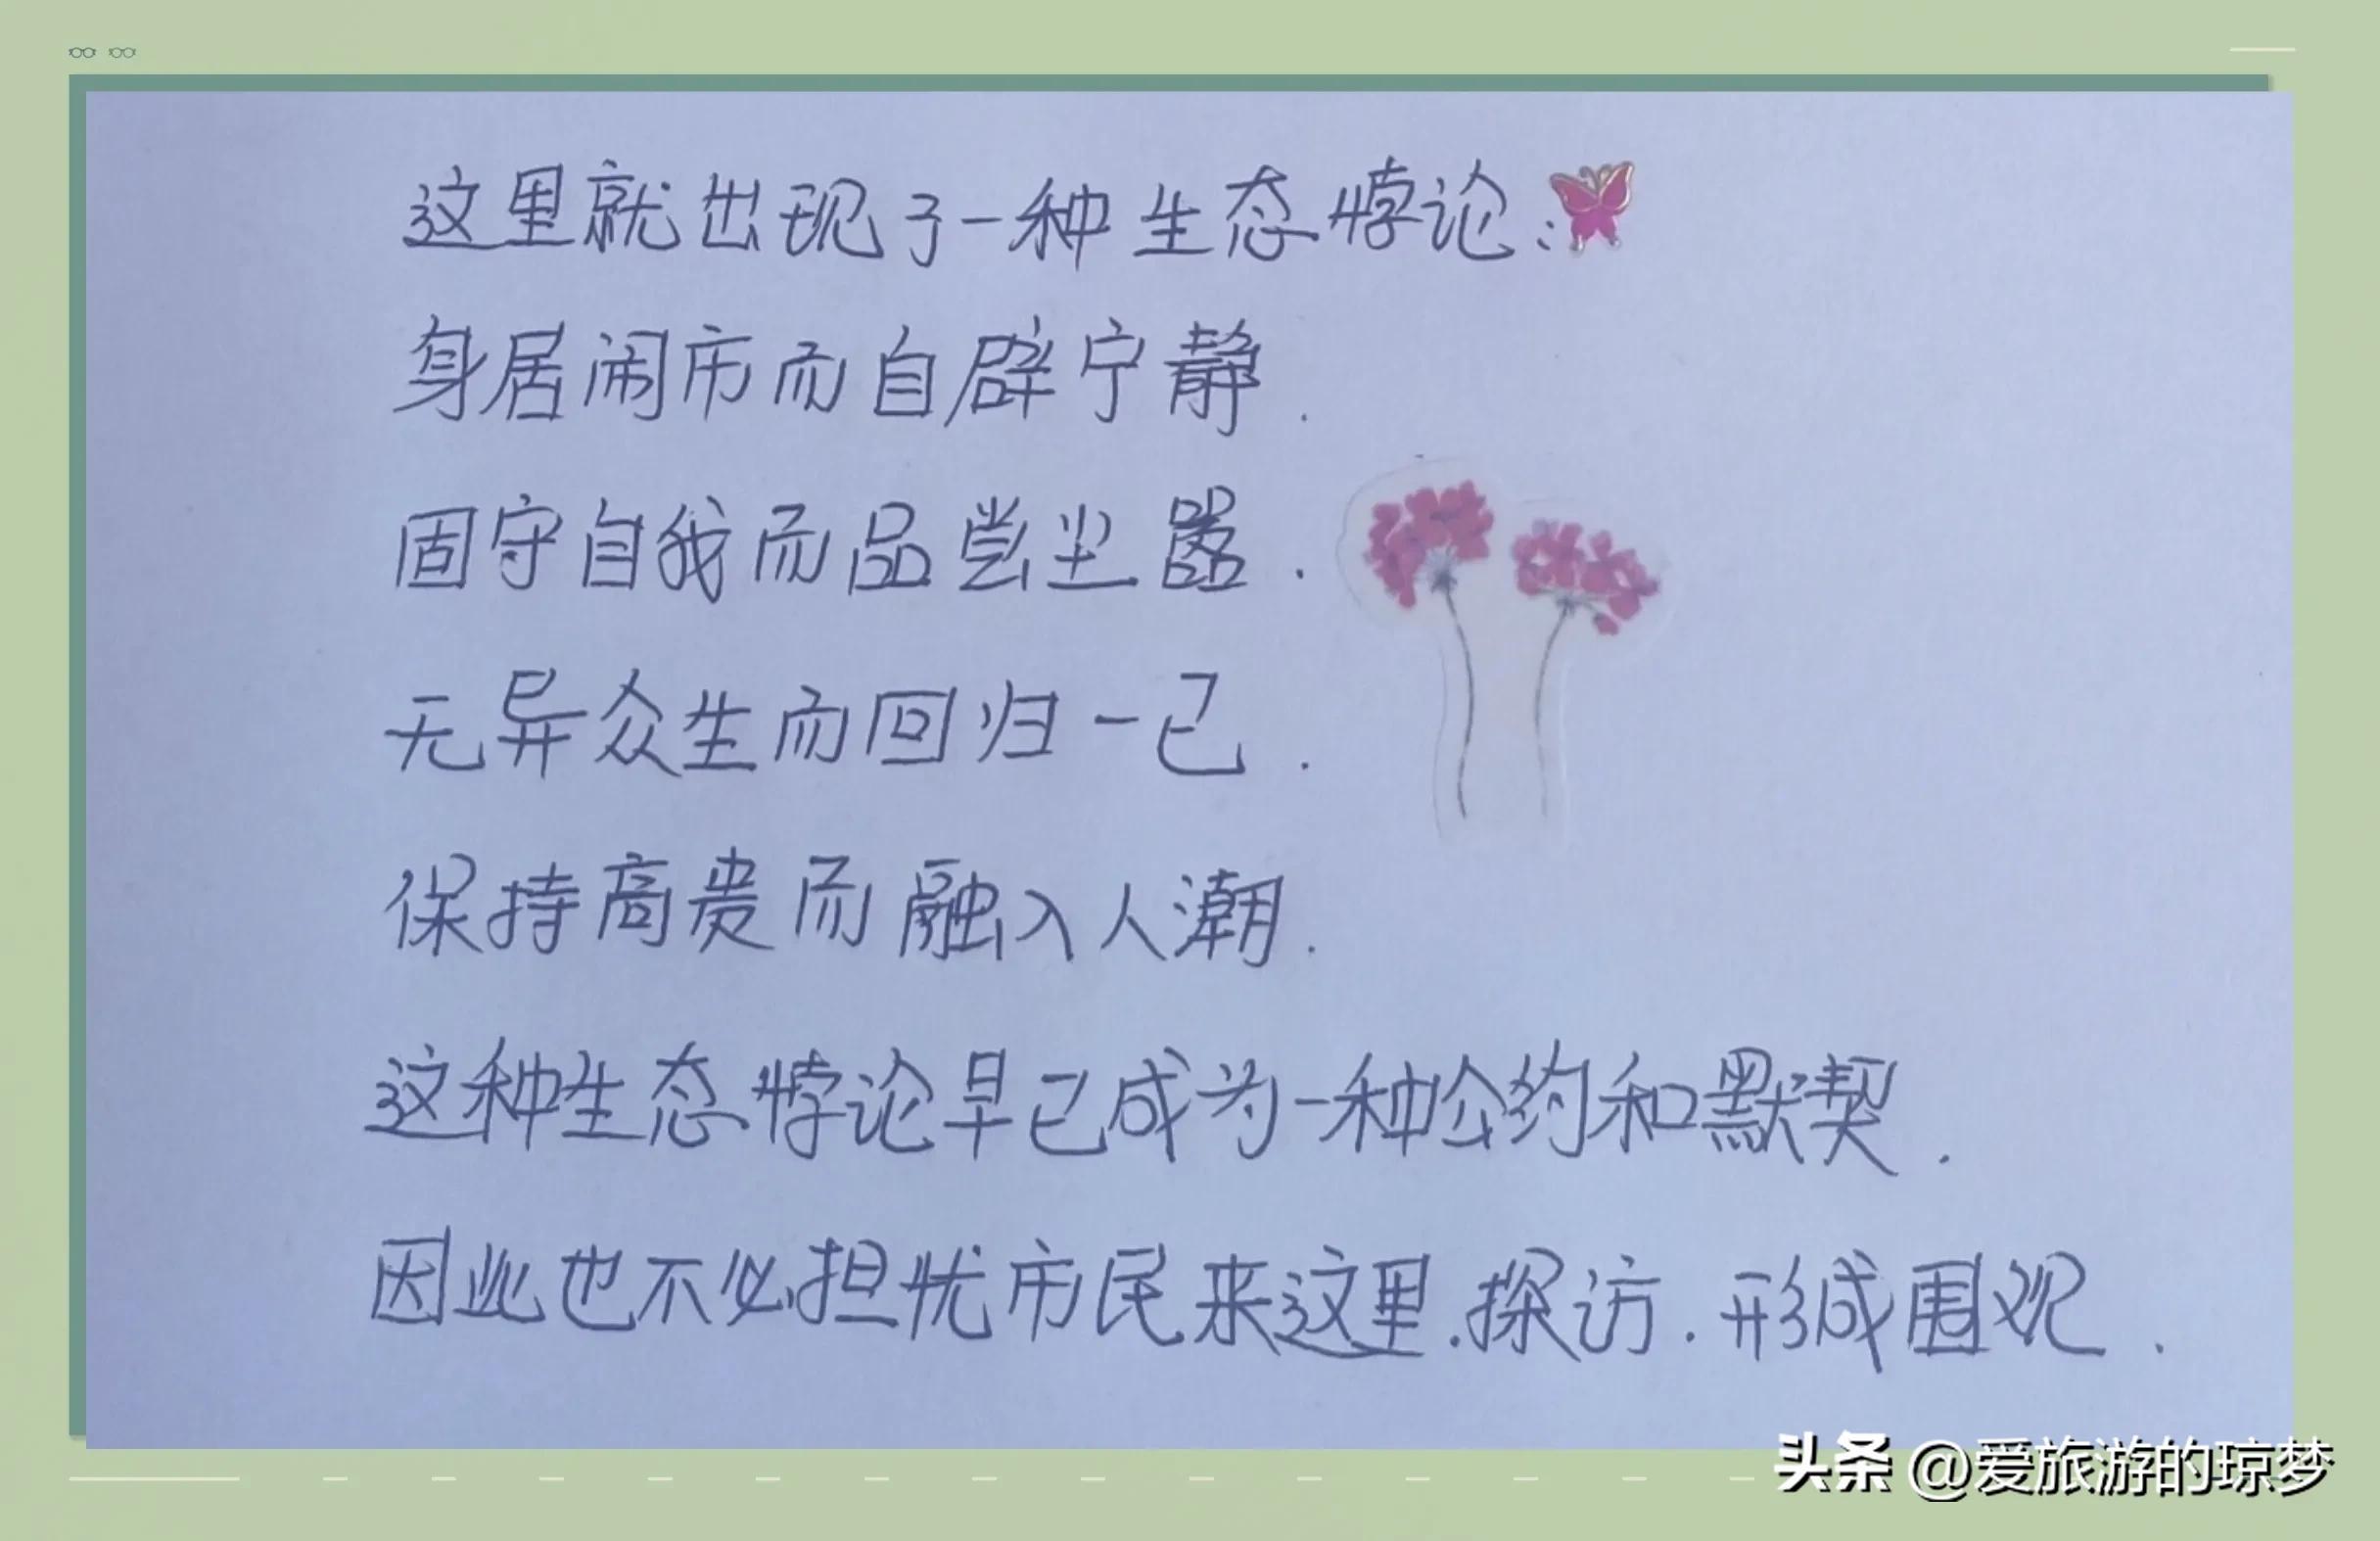 这里就出现了一种生态悖论:
身居闹市而自辟宁静.
固守自我而品尝尘嚣.
无异众生而回归一己.
保持高贵而融入人潮.
这种生态悖论早已成为一种公约和默契.
因此也不必担忧市民来这里.探访.形成围观.
头条 @爱旅游的琼梦